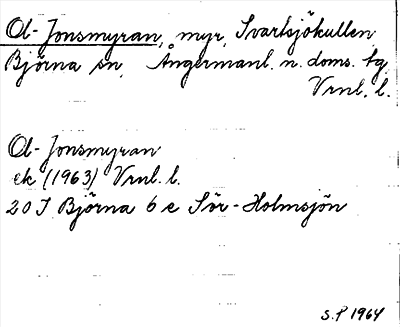 Ol-Jonsmyran, myr, Svartsjökullen
Björna sn, Ångermanl. n. doms. tg
Vrnl. l.
Ol-Jonsmyran
ek (1963) Vrnl. l.
20 I Björna 6 e Sör-Holmsjön
S.P 1964